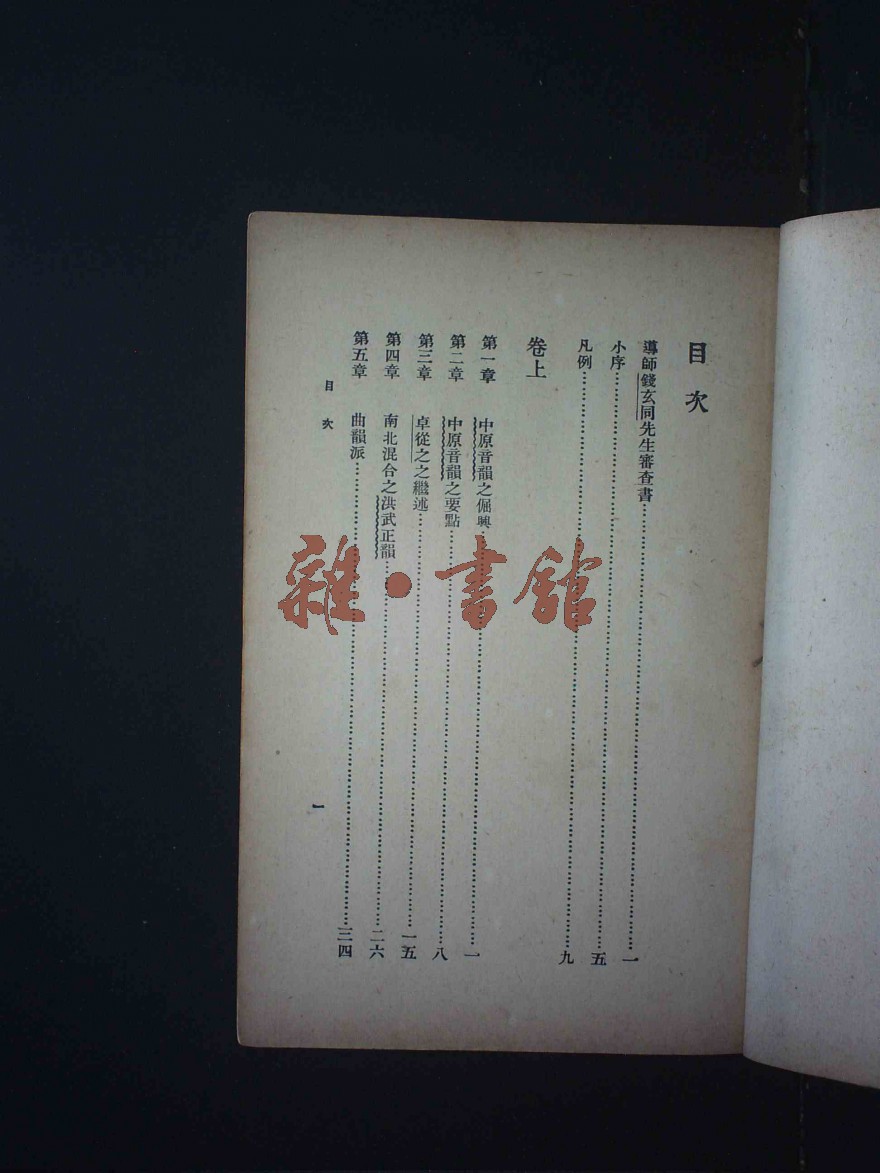 目次
導師錢玄同先生審查書⋯⋯一
小序⋯⋯五
凡例⋯⋯九
卷上
第一章 中原音韻之倔興⋯⋯一
第二章 中原音韻之要點⋯⋯八
第三章 卓從之之繼述⋯⋯一五
第四章 南北混合之洪武正韻⋯⋯二六
第五章 曲韻派⋯⋯三四
目次
一
雜·書館